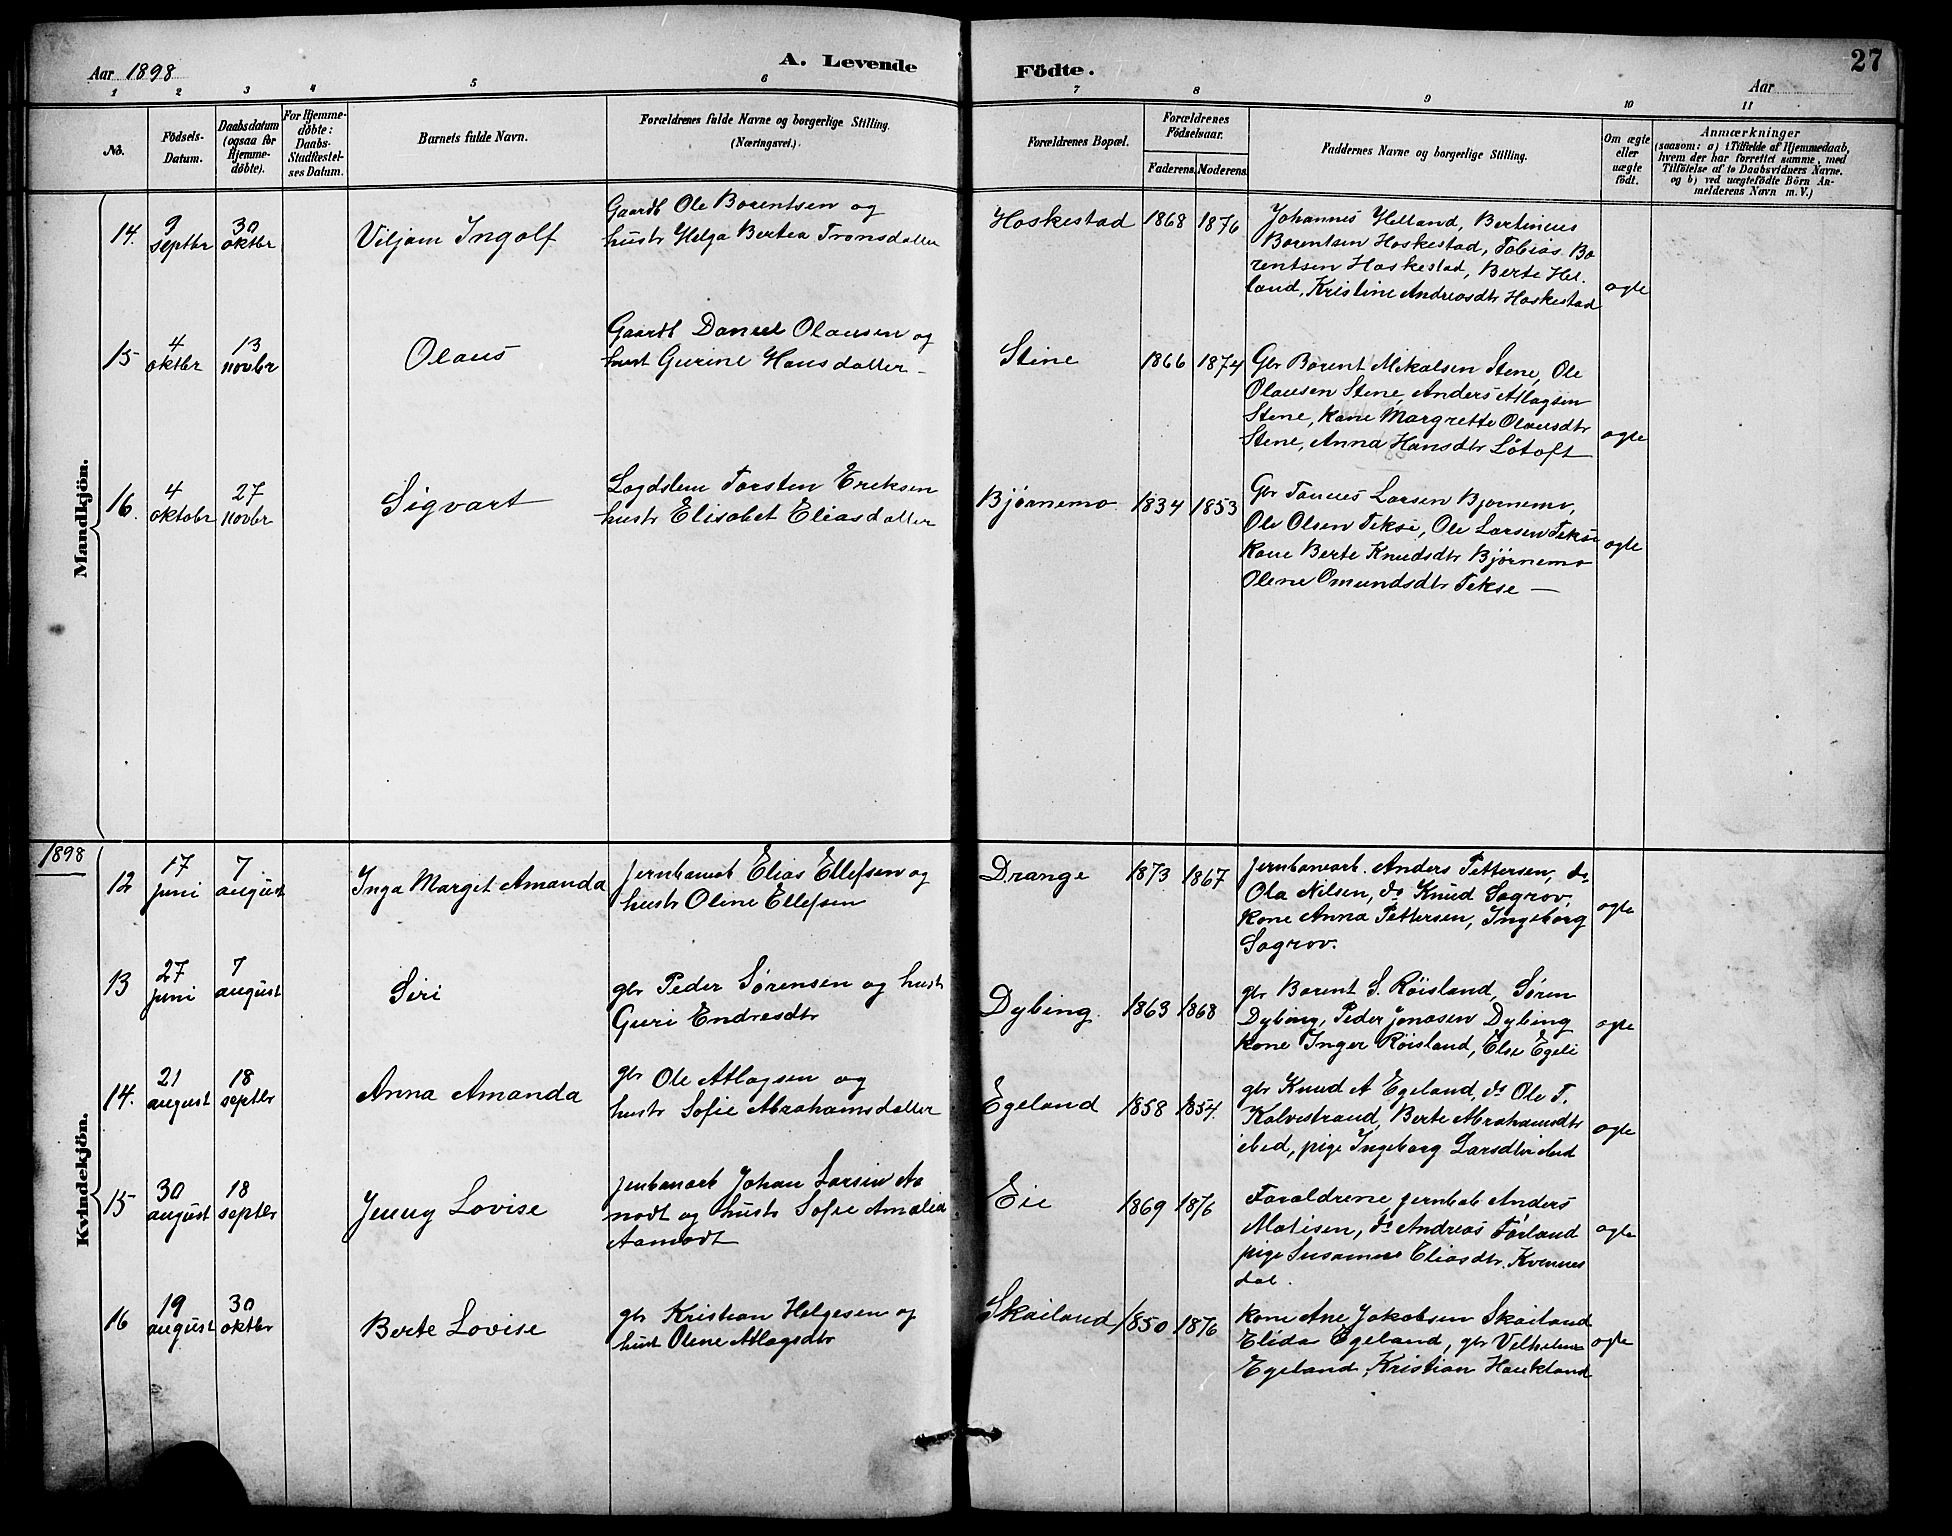 Aar 1898
A. Levende
Födte.
Aar
27
1 2 3 4 5 6 7 8 9 10 11
No.
Födsels-
Datum.
Daabsdatum
(ogsaa for
Hjemme-
døbte).
For Hjemme-
døbte:
Daabs-
Stadfæstel-
ses Datum.
Barnets fulde Navn.
Forældrenes fulde Navne og borgerlige Stilling.
(Næringsvei.)
Forældrenes Bopæl.
Forældrenes
Fødselsaar.
Faderens. Moderens.
Faddernes Navne og borgerlige Stilling.
Om ægte
eller
uægte
födt.
Anmærkninger
(saasom: a) i Tilfælde af Hjemmedaab,
hvem der har forrettet samme, med
Tilføielse af to Daabsvidners Navne.
og b) ved uægtefødte Börn An-
melderens Navn m. V.)
Mandkjön.
14. 9 septbr 30 oktbr
Viljam Ingolf
Gaardb Ole Borentsen og
hustr Helga Bertea Tronsdatter
Hoskestad 1868 1876
Johannes Helland, Bertinius
Borentsen Hoskestad, Tobias Bo
rentsen Hoskestad, Berte Hel.
land, Kristine Andreasdtr Hoskestad
ægte
15 4 oktbr 13 novbr
Olaus
Gaardb Daniel Olausen og
hust Gurine Hansdatter
Stene 1866 1874
Gbr Borent Mikalsen Stene, Ole
Olausen Stene, Anders Atlagsen
Stene, Kone Margrette Olausdtr
Stene, Anna Hansdtr Løtoft
ægte
16. 4 oktobr 27 novbr
Sigvart
Lægdslem Torsten Eriksen
hustr Elisabet Eliasdatter
Bjørnemo 1834 1853
Gbr Tønnes Larsen Bjørnemo,
Ole Olsen Tekse, Ole Larsen Tekse
Kone Berte Knudsdtr Bjørnemo
Olene Omundsdtr Tekse —
ægte
1898
Kvindekjön.
12 17 juni 7 august
Inga Margit Amanda
jernbanearb Elias Ellefsen og
hustr Oline Ellefsen
Drange 1873 1867
jernbanearb. Anders Pettersen, do
Ola Nilsen, do Knud Sagrov,
Kone Anna Pettersen, Ingeborg
Sagrov.
ægte
13 27 juni 7 august
Siri
gbr Peder Sørensen og hustr
Guri Endresdtr
Dybing 1863 1868
gbr Borent S. Røisland, Søren
Dybing, Peder Jonasen Dybing
Kone Inger Røisland, Else Egeli
ægte
14. 21 august 18 septbr
Anna Amanda
gbr Ole Atlagsen og
hustr Sofie Abrahamsdatter
Egeland 1858 1854.
gbr Knud A Egeland, do Ole T.
Kalvestrand, Berte Abrahamsdtr
ibid, pige Ingeborg Larsdtr ibid
ægte
15 30 august 18 septbr
Jenny Lovise
jernbanearb Johan Larsen Aa
modt og hustr Sofie Amalia
Aamodt
Eie 1869 1876
Forældrene, jernbab Anders
Matisen, do Andreas Førland
pige Susanne Eliasdtr. Kvennes
dal.
ægte
16 19 august 30 oktbr
Berte Lovise
gbr Kristian Helgesen og
hust Olene Atlagsdtr
Skailand 1850 1876
Kone Ane Jakobsen Skailand
Elida Egeland, gbr Vilhelm
Egeland, Kristian Haukland
ægte